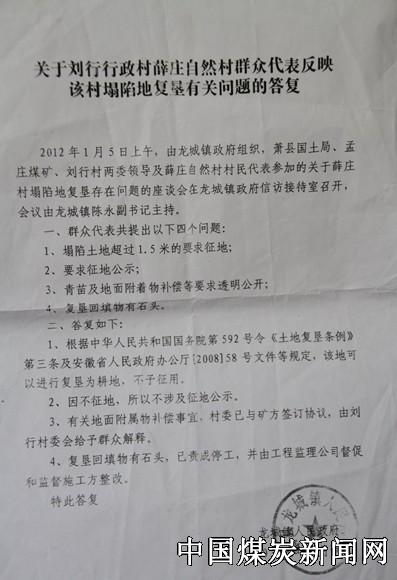 关于刘行行政村薛庄自然村群众代表反映
该村塌陷地复垦有关问题的答复
2012年1月5日上午，由龙城镇政府组织，萧县国土局、孟
庄煤矿、刘行村两委领导及薛庄自然村村民代表参加的关于薛庄
村塌陷地复垦存在问题的座谈会在龙城镇政府信访接待室召开，
会议由龙城镇陈永副书记主持。
一、群众代表共提出以下四个问题：
1、塌陷土地超过1.5米的要求征地；
2、要求征地公示；
3、青苗及地面附着物补偿等要求透明公开；
4、复垦回填物有石头。
二、答复如下：
1、根据中华人民共和国国务院第592号令《土地复垦条例》
第三条及安徽省人民政府办公厅[2008]58号文件等规定，该地可
以进行复垦为耕地，不予征用。
2、因不征地，所以不涉及征地公示。
3、有关地面附属物补偿事宜，村委已与矿方签订协议，由刘
行村委会给予群众解释。
4、复垦回填物有石头，已责成停工，并由工程监理公司督促
和监督施工方整改。
特此答复
龙城镇人民政府
中国煤炭新闻网